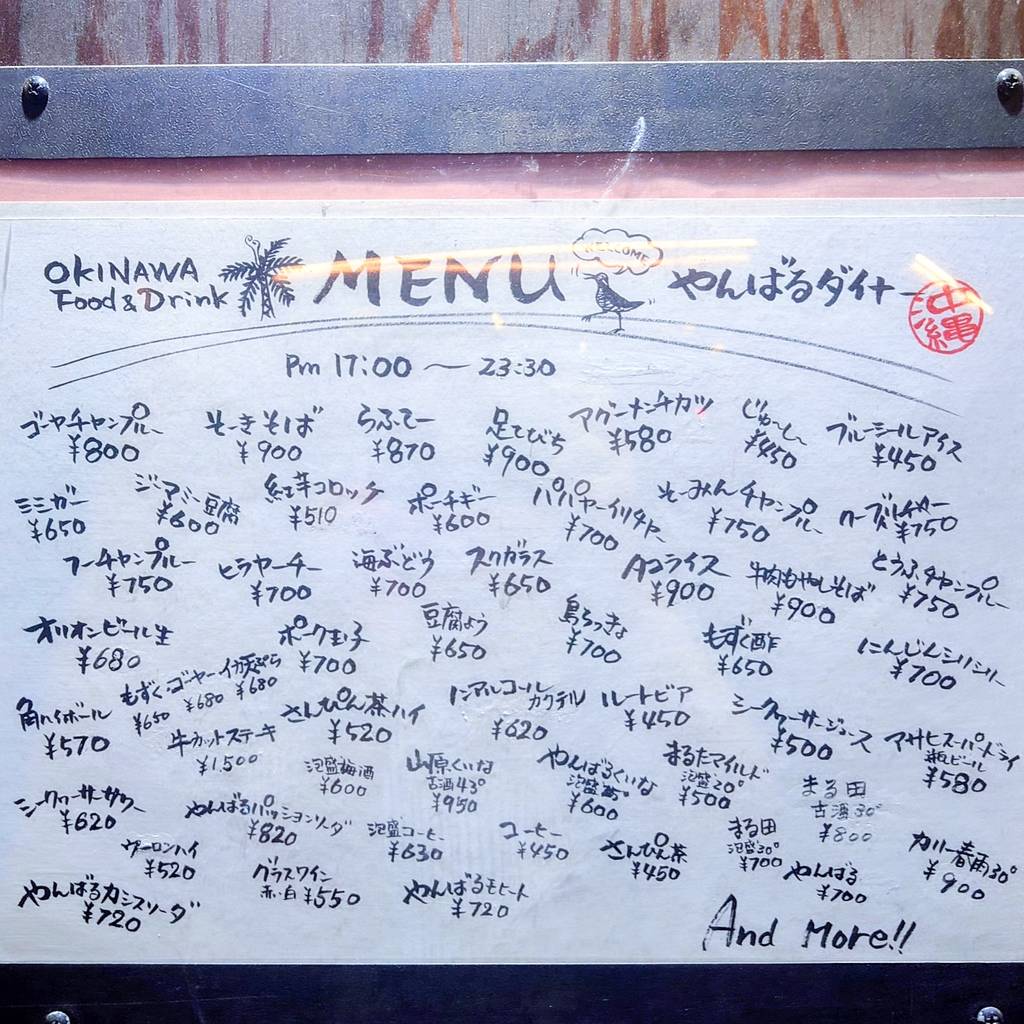 OKINAWA
Food & Drink
MENU
WELCOME
やんばるダイナー
沖縄
Pm 17:00 〜 23:30
ゴーヤチャンプルー
¥800
そーきそば
¥900
らふてー
¥870
足てびち
¥900
アグーメンチカツ
¥580
じゅーしー
¥450
ブルーシールアイス
¥450
ミミガー
¥650
ジーマーミー豆腐
¥600
紅芋コロッケ
¥510
ポーチギー
¥600
パパヤーイリチャー
¥700
そーみんチャンプルー
¥750
¥750
フーチャンプルー
¥750
ヒラヤーチー
¥700
海ぶどう
¥700
スクガラス
¥650
タコライス
¥900
牛肉もやしそば
¥900
とうふチャンプルー
¥750
オリオンビール生
¥680
ポーク玉子
¥700
豆腐よう
¥650
島らっきょ
¥700
もずく酢
¥650
にんじんシリシリー
¥700
角ハイボール
¥570
もずく・ゴーヤー・イカ天ぷら
¥650 ¥680 ¥680
さんぴん茶ハイ
¥520
ノンアルコール
カクテル
¥620
ルートビア
¥450
シークヮーサージュース
¥500
アサヒスーパードライ
瓶ビール
¥580
牛カットステーキ
¥1,500
泡盛梅酒
¥600
山原くいな
古酒43°
¥950
やんばるくいな
泡盛35°
¥600
まるたマイルド
泡盛20°
¥500
まる田
古酒30°
¥800
シークヮーサーサワー
¥620
やんばるパッションソーダ
¥820
泡盛コーヒー
¥630
コーヒー
¥450
さんぴん茶
¥450
まる田
泡盛30°
¥700
カリー春雨30°
¥900
ウーロンハイ
¥520
グラスワイン
赤・白 ¥550
やんばる
¥700
やんばるカシスソーダ
¥720
やんばるモヒート
¥720
And More!!